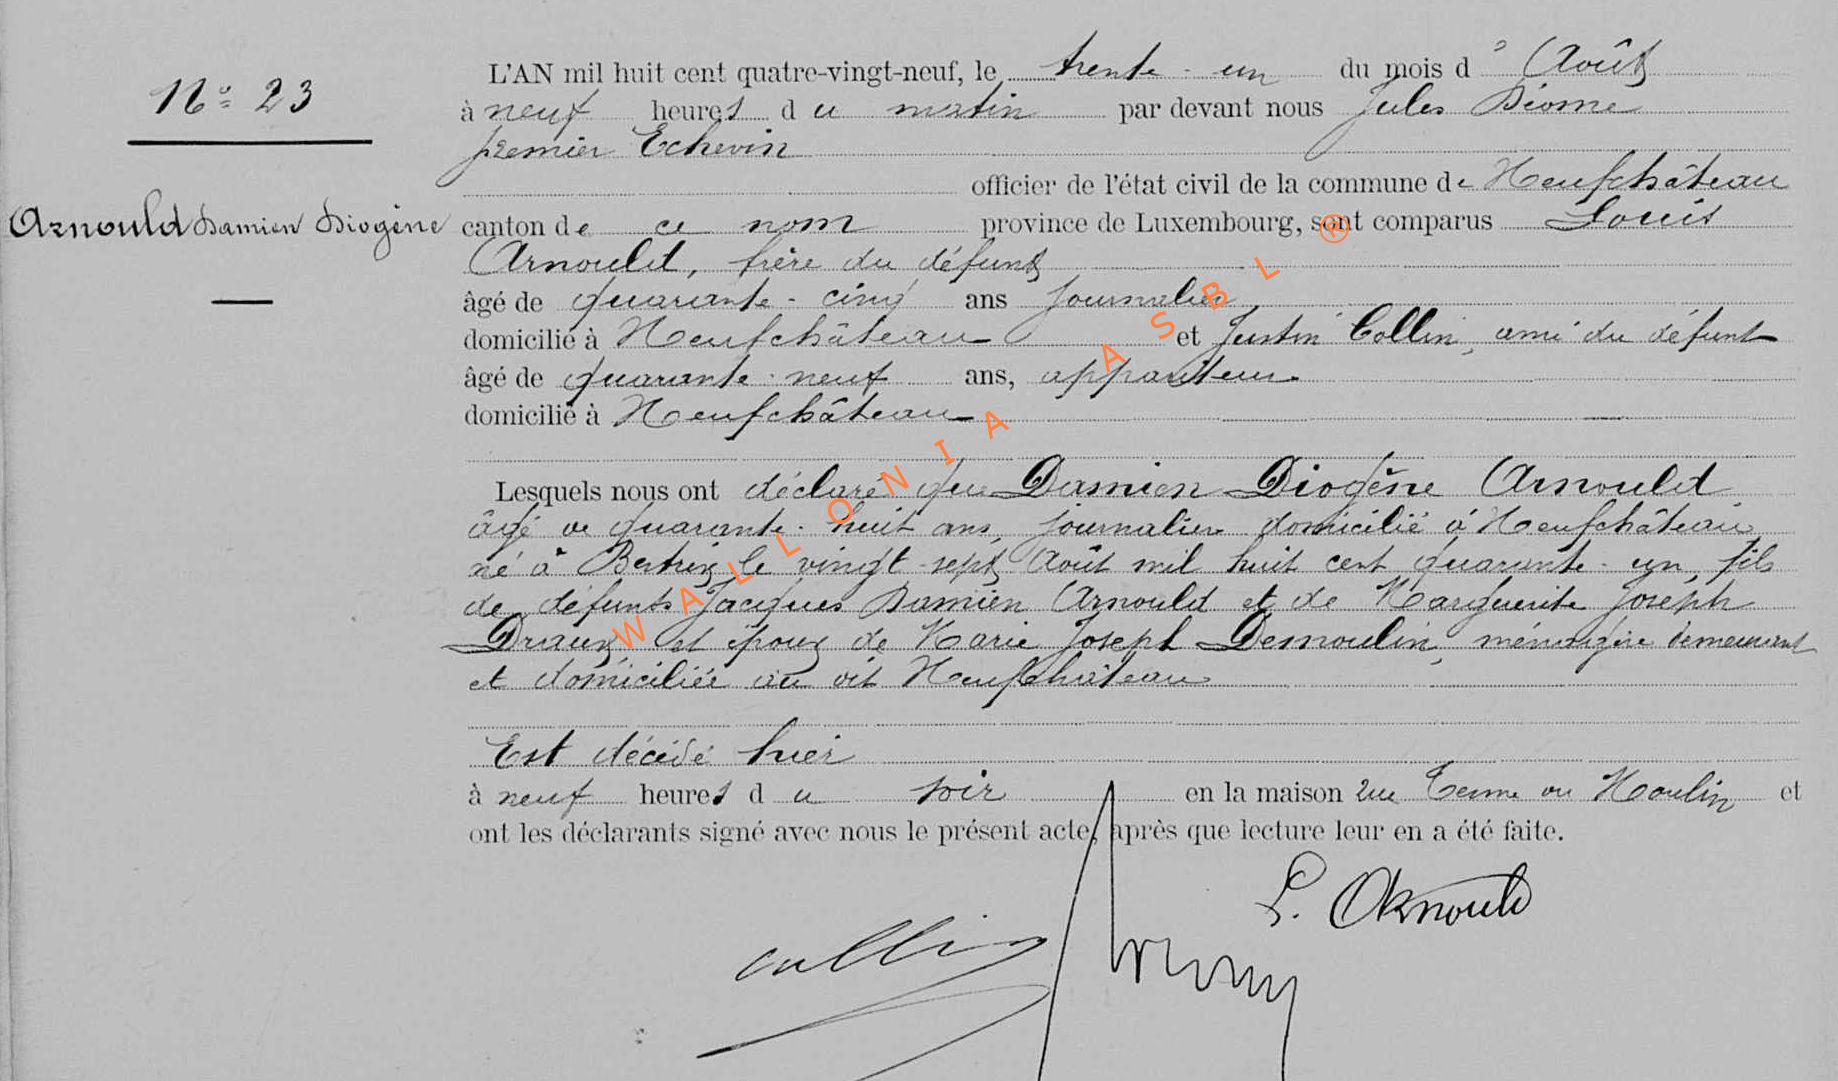 N° 23
Arnould Damien Diogène
L'AN mil huit cent quatre-vingt-neuf, le trente-un du mois d'Août
à neuf heures du matin par devant nous Jules Diome
premier Echevin
officier de l'état civil de la commune de Neufchâteau
canton de ce nom province de Luxembourg, sont comparus Louis
Arnould, frère du défunt
âgé de quarante-cinq ans journalier
domicilié à Neufchâteau et Justin Collin, ami du défunt
âgé de quarante-neuf ans, appariteur
domicilié à Neufchâteau
Lesquels nous ont déclaré que Damien Diogène Arnould
âgé de quarante-huit ans, journalier domicilié à Neufchâteau,
né à Bertrix le vingt-sept Août mil huit cent quarante-un, fils
de défunts Jacques Damien Arnould et de Marguerite Joseph
et époux de Marie Joseph Demoulin, ménagère demeurant
et domiciliée au dit Neufchâteau
Est décédé hier
à neuf heures du soir en la maison rue Terme du Moulin et
ont les déclarants signé avec nous le présent acte, après que lecture leur en a été faite.
L. Arnould
Collin
WALLONIA ASBL ®